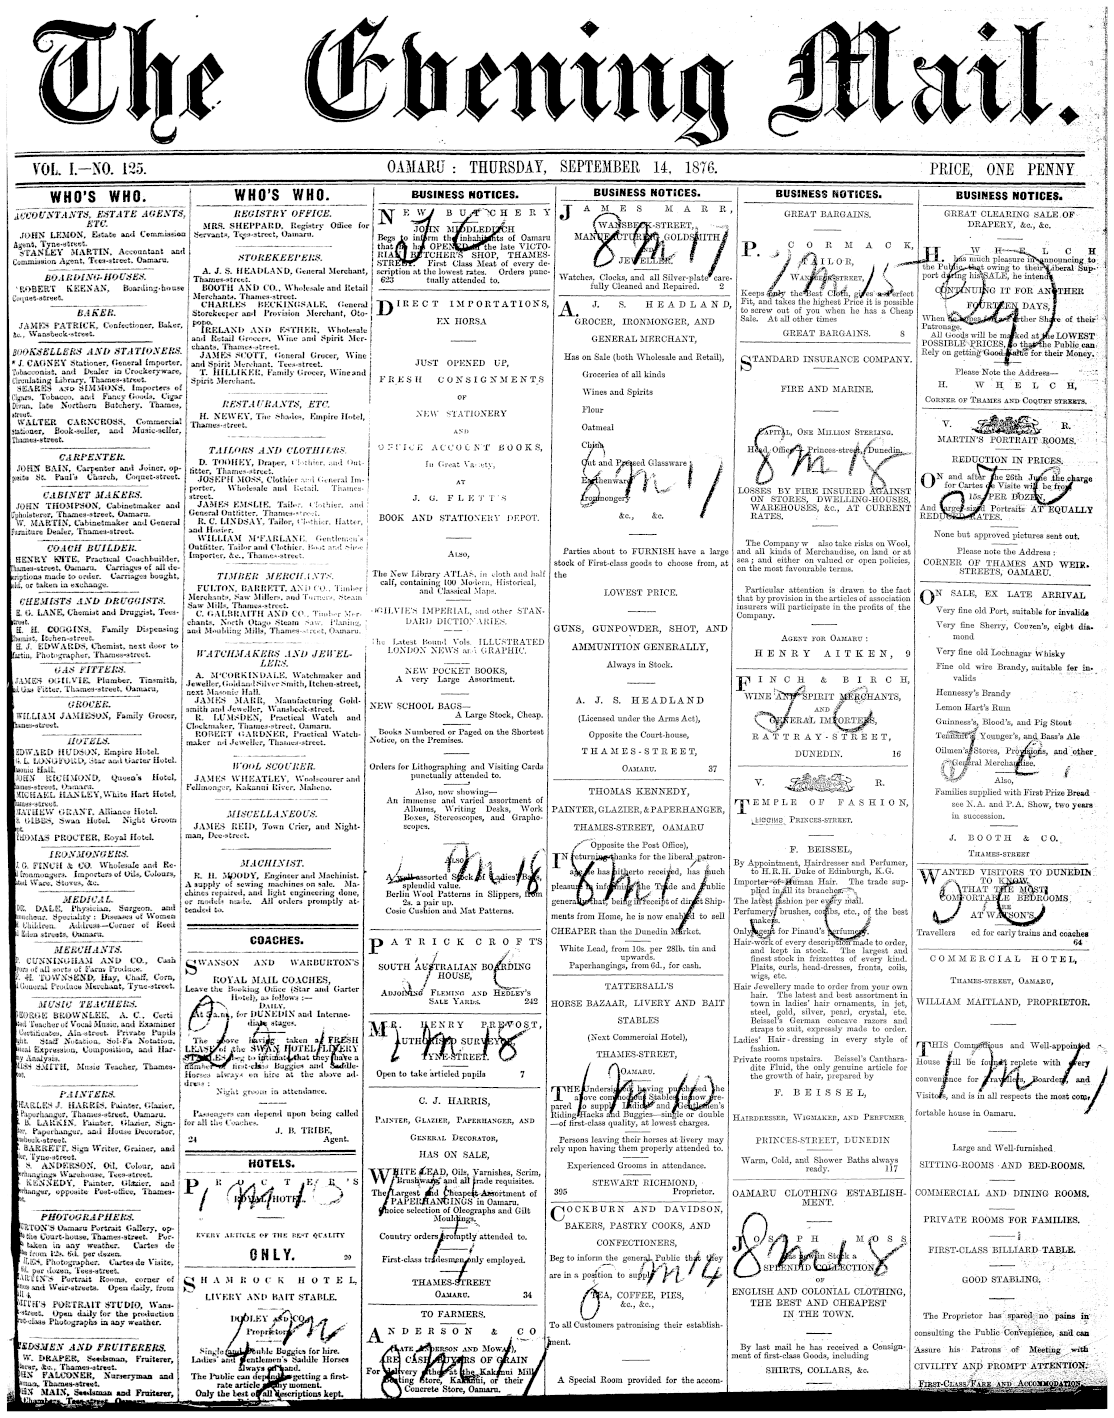 The Evening Mail.
VOL. I.—NO. 125.
OAMARU : THURSDAY, SEPTEMBER 14, 1876.
PRICE, ONE PENNY
WHO'S WHO.
ACCOUNTANTS, ESTATE AGENTS,
ETC.
JOHN LEMON, Estate and Commission
Agent, Tyne-street.
STANLEY MARTIN, Accountant and
Commission Agent, Tees-street, Oamaru.
BOARDING-HOUSES.
ROBERT KEENAN, Boarding-house
Coquet-street.
BAKER.
JAMES PATRICK, Confectioner, Baker,
&c., Wansbeck-street.
BOOKSELLERS AND STATIONERS.
J. CAGNEY Stationer, General Importer,
Tobacconist, and Dealer in Crockeryware,
Circulating Library, Thames-street.
SEARES AND SIMMONS, Importers of
Cigars, Tobacco, and Fancy Goods, Cigar
Divan, late Northern Butchery, Thames,
street.
WALTER CARNCROSS, Commercial
Stationer, Book-seller, and Music-seller,
Thames-street.
CARPENTER.
JOHN BAIN, Carpenter and Joiner, op-
posite St. Paul's Church, Coquet-street.
CABINET MAKERS.
JOHN THOMPSON, Cabinetmaker and
Upholsterer, Thames-street, Oamaru.
W. MARTIN, Cabinetmaker and General
Furniture Dealer, Thames-street.
COACH BUILDER.
HENRY KITE, Practical Coachbuilder,
Thames-street, Oamaru. Carriages of all de-
scriptions made to order. Carriages bought,
sold, or taken in exchange.
CHEMISTS AND DRUGGISTS.
E. G. LANE, Chemist and Druggist, Tees-
street.
H. H. COGGINS, Family Dispensing
Chemist, Itchen-street.
H. J. EDWARDS, Chemist, next door to
Martin, Photographer, Thames-street.
GAS FITTERS.
JAMES OGILVIE, Plumber, Tinsmith,
and Gas Fitter, Thames-street, Oamaru,
GROCER.
WILLIAM JAMIESON, Family Grocer,
Thames-street.
HOTELS.
EDWARD HUDSON, Empire Hotel.
LONGFORD, Star and Garter Hotel.
Masonic Hall.
JOHN RICHMOND, Queen's Hotel,
Thames-street, Oamaru.
MICHAEL HANLEY, White Hart Hotel,
Thames-street.
MATHEW GRANT, Alliance Hotel.
GIBBS, Swan Hotel. Night Groom
THOMAS PROCTER, Royal Hotel.
IRONMONGERS.
J. G. FINCH & CO. Wholesale and Re-
tail Ironmongers. Importers of Oils, Colours,
and Ware, Stoves, &c.
MEDICAL.
DR. DALE, Physician, Surgeon, and
Accoucheur. Speciality : Diseases of Women
and Children. Address—Corner of Reed
and Eden streets, Oamaru.
MERCHANTS.
CUNNINGHAM AND CO., Cash
Buyers of all sorts of Farm Produce.
H. TOWNSEND, Hay, Chaff, Corn,
and General Produce Merchant, Tyne-street.
MUSIC TEACHERS.
GEORGE BROWNLEE, A. C., Certi
ficated Teacher of Vocal Music, and Examiner
Certificates, Ain-street. Private Pupils
Staff Notation, Sol-Fa Notation,
Vocal Expression, Composition, and Har-
mony Analysis.
MISS SMITH, Music Teacher, Thames-
street.
PAINTERS.
CHARLES J. HARRIS, Painter, Glazier,
Paperhanger, Thames-street, Oamaru.
B. LARKIN, Painter, Glazier, Sign-
writer, Paperhanger, and House Decorator,
BARRETT, Sign Writer, Grainer, and
Tyne-street.
S. ANDERSON, Oil, Colour, and
Paperhangings Warehouse, Tees-street.
KENNEDY, Painter, Glazier, and
Paperhanger, opposite Post-office, Thames-
PHOTOGRAPHERS.
BURTON'S Oamaru Portrait Gallery, op-
posite the Court-house, Thames-street. Por-
traits taken in any weather. Cartes de
Visite from 12s. 6d. per dozen.
Photographer. Cartes de Visite,
per dozen, Tees-street.
MARTIN'S Portrait Rooms, corner of
Thames and Weir-streets. Open daily, from
SMITH'S PORTRAIT STUDIO, Wans-
beck-street. Open daily for the production
of first-class Photographs in any weather.
SEEDSMEN AND FRUITERERS.
W. DRAPER, Seedsman, Fruiterer,
JOHN FALCONER, Nurseryman and
Seedsman, Thames-street.
JOHN MAIN, Seedsman and Fruiterer,
WHO'S WHO.
REGISTRY OFFICE.
MRS. SHEPPARD, Registry Office for
Servants, Tees-street, Oamaru.
STOREKEEPERS.
A. J. S. HEADLAND, General Merchant,
Thames-street.
BOOTH AND CO., Wholesale and Retail
Merchants, Thames-street.
CHARLES BECKINGSALE, General
Storekeeper and Provision Merchant, Oto-
popo.
IRELAND AND ESTHER, Wholesale
and Retail Grocers, Wine and Spirit Mer-
chants, Thames-street.
JAMES SCOTT, General Grocer, Wine
and Spirit Merchant, Tees-street.
T. HILLIKER, Family Grocer, Wine and
Spirit Merchant.
RESTAURANTS, ETC.
H. NEWEY, The Shades, Empire Hotel,
Thames-street.
TAILORS AND CLOTHIERS.
D. TOOHEY, Draper, Clothier, and Out-
fitter, Thames-street.
JOSEPH MOSS, Clothier and General Im-
porter, Wholesale and Retail. Thames-
street.
JAMES EMSLIE, Tailor, Clothier, and
General Outfitter. Thames-street.
R. C. LINDSAY, Tailor, Clothier, Hatter,
and Hosier.
WILLIAM M'FARLANE, Gentlemen's
Outfitter, Tailor and Clothier, Boot and Shoe
Importer, &c., Thames-street.
TIMBER MERCHANTS.
FULTON, BARRETT, AND CO., Timber
Merchants, Saw Millers, and Turners, Steam
Saw Mills, Thames-street.
C. GALBRAITH AND CO., Timber Mer-
chants, North Otago Steam Saw, Planing,
and Moulding Mills, Thames-street, Oamaru.
WATCHMAKERS AND JEWEL-
LERS.
A. M'CORKINDALE, Watchmaker and
Jeweller, Gold and Silver Smith, Itchen-street,
next Masonic Hall.
JAMES MARR, Manufacturing Gold-
smith and Jeweller, Wansbeck-street.
R. LUMSDEN, Practical Watch and
Clockmaker, Thames-street, Oamaru.
ROBERT GARDNER, Practical Watch-
maker nd Jeweller, Thames-street.
WOOL SCOURER.
JAMES WHEATLEY, Woolscourer and
Fellmonger, Kakanui River, Maheno.
MISCELLANEOUS.
JAMES REID, Town Crier, and Night-
man, Dee-street.
MACHINIST.
R. H. MOODY, Engineer and Machinist.
A supply of sewing machines on sale. Ma-
chines repaired, and light engineering done,
or models made. All orders promptly at-
tended to.
COACHES.
SWANSON AND WARBURTON'S
ROYAL MAIL COACHES,
Leave the Booking Office (Star and Garter
Hotel), as follows :—
DAILY,
At 8 a.m., for DUNEDIN and Interme-
diate stages.
The above having taken a FRESH
LEASE of the SWAN HOTEL LIVERY
STABLES, beg to intimate that they have a
number of first-class Buggies and Saddle-
Horses always on hire at the above ad-
dress :
Night groom in attendance.
Passengers can depend upon being called
for all the Coaches.
J. B. TRIBE,
24 Agent.
HOTELS.
PROCTER'S
ROYAL HOTEL.
EVERY ARTICLE OF THE BEST QUALITY
ONLY. 20
SHAMROCK HOTEL,
LIVERY AND BAIT STABLE.
DOOLEY AND CO.,
Proprietors.
Single and Double Buggies for hire.
Ladies' and Gentlemen's Saddle Horses
always on hand.
The Public can depend on getting a first-
rate article at any moment.
Only the best of all descriptions kept.
BUSINESS NOTICES.
NEW BUTCHERY
JOHN MIDDLEDITCH
Begs to inform the inhabitants of Oamaru
that he has OPENED in the late VICTO-
RIAN BUTCHER'S SHOP, THAMES-
STREET. First Class Meat of every de-
scription at the lowest rates. Orders punc-
623 tually attended to.
DIRECT IMPORTATIONS,
EX HORSA
JUST OPENED UP,
FRESH CONSIGNMENTS
OF
NEW STATIONERY
AND
OFFICE ACCOUNT BOOKS,
In Great Variety,
AT
J. G. FLETT'S
BOOK AND STATIONERY DEPOT.
Also,
The New Library ATLAS, in cloth and half
calf, containing 100 Modern, Historical,
and Classical Maps.
OGILVIE'S IMPERIAL, and other STAN-
DARD DICTIONARIES.
The Latest Bound Vols. ILLUSTRATED
LONDON NEWS and GRAPHIC.
NEW POCKET BOOKS,
A very Large Assortment.
NEW SCHOOL BAGS—
A Large Stock, Cheap.
Books Numbered or Paged on the Shortest
Notice, on the Premises.
Orders for Lithographing and Visiting Cards
punctually attended to.
Also, now showing—
An immense and varied assortment of
Albums, Writing Desks, Work
Boxes, Stereoscopes, and Grapho-
scopes.
ALSO,
A well assorted Stock of Ladies' Bags
splendid value.
Berlin Wool Patterns in Slippers, from
2s. a pair up.
Cosie Cushion and Mat Patterns.
PATRICK CROFTS
SOUTH AUSTRALIAN BOARDING
HOUSE,
ADJOINING FLEMING AND HEDLEY'S
SALE YARDS. 242
MR. HENRY PREVOST,
AUTHORISED SURVEYOR
TYNE-STREET.
Open to take articled pupils 7
C. J. HARRIS,
PAINTER, GLAZIER, PAPERHANGER, AND
GENERAL DECORATOR,
HAS ON SALE,
WHITE LEAD, Oils, Varnishes, Scrim,
Brushware, and all trade requisites.
The Largest and Cheapest Assortment of
PAPERHANGINGS in Oamaru.
Choice selection of Oleographs and Gilt
Mouldings,
Country orders promptly attended to.
First-class tradesmen only employed.
THAMES-STREET
OAMARU. 34
TO FARMERS.
ANDERSON & CO
(LATE ANDERSON AND MOWAT),
ARE CASH BUYERS OF GRAIN
For delivery either at the Kakanui Mill
Boating Store, Kakanui, or their
Concrete Store, Oamaru.
BUSINESS NOTICES.
JAMES MARR,
WANSBECK-STREET,
MANUFACTURING GOLDSMITH
JEWELLER.
Watches, Clocks, and all Silver-plate care-
fully Cleaned and Repaired. 2
A. J. S. HEADLAND,
GROCER, IRONMONGER, AND
GENERAL MERCHANT,
Has on Sale (both Wholesale and Retail),
Groceries of all kinds
Wines and Spirits
Flour
Oatmeal
China
Cut and Pressed Glassware
Earthenware
Ironmongery
&c., &c.
Parties about to FURNISH have a large
stock of First-class goods to choose from, at
the
LOWEST PRICE.
GUNS, GUNPOWDER, SHOT, AND
AMMUNITION GENERALLY,
Always in Stock.
A. J. S. HEADLAND
(Licensed under the Arms Act),
Opposite the Court-house,
THAMES-STREET,
OAMARU. 37
THOMAS KENNEDY,
PAINTER, GLAZIER, & PAPERHANGER,
THAMES-STREET, OAMARU
(Opposite the Post Office),
IN returning thanks for the liberal patron-
age he has hitherto received, has much
pleasure in informing the Trade and Public
generally that being in receipt of direct Ship-
ments from Home, he is now enabled to sell
CHEAPER than the Dunedin Market.
White Lead, from 10s. per 28lb, tin and
upwards.
Paperhangings, from 6d., for cash.
TATTERSALL'S
HORSE BAZAAR, LIVERY AND BAIT
STABLES
(Next Commercial Hotel),
THAMES-STREET,
OAMARU.
THE Undersigned having purchased the
above commodious Stables is now pre-
pared to supply Ladies' and Gentlemen's
Riding Hacks and Buggies—single or double
—of first-class quality, at lowest charges.
Persons leaving their horses at livery may
rely upon having them properly attended to.
Experienced Grooms in attendance.
STEWART RICHMOND,
395 Proprietor.
COCKBURN AND DAVIDSON,
BAKERS, PASTRY COOKS, AND
CONFECTIONERS,
Beg to inform the general Public that they
are in a position to supply
TEA, COFFEE, PIES,
&c., &c.,
To all Customers patronising their establish-
ment.
A Special Room provided for the accom-
BUSINESS NOTICES.
GREAT BARGAINS.
P. CORMACK,
TAILOR,
WANSBECK-STREET,
Keeps only the Best Cloth, gives a Perfect
Fit, and takes the highest Price it is possible
to screw out of you when he has a Cheap
Sale. At all other times
GREAT BARGAINS. 8
STANDARD INSURANCE COMPANY.
FIRE AND MARINE.
CAPITAL, ONE MILLION STERLING.
Head Office, Princes-street, Dunedin.
LOSSES BY FIRE INSURED AGAINST
ON STORES, DWELLING-HOUSES,
WAREHOUSES, &c., AT CURRENT
RATES.
The Company w also take risks on Wool,
and all kinds of Merchandise, on land or at
sea ; and either on valued or open policies,
on the most favorable terms.
Particular attention is drawn to the fact
that by provision in the articles of association
insurers will participate in the profits of the
Company.
AGENT FOR OAMARU :
HENRY AITKEN, 9
FINCH & BIRCH,
WINE AND SPIRIT MERCHANTS,
AND
GENERAL IMPORTERS,
RATTRAY-STREET,
DUNEDIN. 16
V. R.
TEMPLE OF FASHION,
PRINCES-STREET.
F. BEISSEL,
By Appointment, Hairdresser and Perfumer,
to H.R.H. Duke of Edinburgh, K.G.
Importer of Human Hair. The trade sup-
plied in all its branches.
The latest fashion per every mail.
Perfumery, brushes, combs, etc., of the best
makers.
Only Agent for Pinaud's Perfumery
Hair-work of every description made to order,
and kept in stock. The largest and
finest stock in frizzettes of every kind.
Plaits, curls, head-dresses, fronts, coils,
wigs, etc.
Hair Jewellery made to order from your own
hair. The latest and best assortment in
town in ladies' hair ornaments, in jet,
steel, gold, silver, pearl, crystal, etc.
Beissel's German concave razors and
straps to suit, expressly made to order.
Ladies' Hair-dressing in every style of
fashion.
Private rooms upstairs. Beissel's Canthara-
dite Fluid, the only genuine article for
the growth of hair, prepared by
F. BEISSEL,
HAIRDRESSER, WIGMAKER, AND PERFUMER
PRINCES-STREET, DUNEDIN
Warm, Cold, and Shower Baths always
ready. 117
OAMARU CLOTHING ESTABLISH-
MENT.
JOSEPH MOSS
Has now in Stock a
SPLENDID COLLECTION
OF
ENGLISH AND COLONIAL CLOTHING,
THE BEST AND CHEAPEST
IN THE TOWN.
By last mail he has received a Consign-
ment of first-class Goods, including
SHIRTS, COLLARS, &c.
BUSINESS NOTICES.
GREAT CLEARING SALE OF
DRAPERY, &c., &c.
H. WHELCH
has much pleasure in announcing to
the Public that owing to their Liberal Sup-
port during his SALE, he intends
CONTINUING IT FOR ANOTHER
FOURTEEN DAYS,
When he hopes for a further Share of their
Patronage.
All Goods will be marked at the LOWEST
POSSIBLE PRICES, so that the Public can
Rely on getting Good Value for their Money.
Please Note the Address—
H. WHELCH,
CORNER OF THAMES AND COQUET STREETS.
V. R.
MARTIN'S PORTRAIT ROOMS.
REDUCTION IN PRICES.
ON and after the 26th June the charge
for Cartes de Visite will be from
15s. PER DOZEN,
And Larger-sized Portraits AT EQUALLY
REDUCED RATES.
None but approved pictures sent out.
Please note the Address :
CORNER OF THAMES AND WEIR-
STREETS, OAMARU.
ON SALE, EX LATE ARRIVAL
Very fine old Port, suitable for invalids
Very fine Sherry, Cozven's, eight dia-
mond
Very fine old Lochnagar Whisky
Fine old wire Brandy, suitable for in-
valids
Hennessy's Brandy
Lemon Hart's Rum
Guinness's, Blood's, and Pig Stout
Tennant's, Younger's, and Bass's Ale
Oilmen's Stores, Provisions, and other
General Merchandise.
Also,
Families supplied with First Prize Bread
see N.A. and P.A. Show, two years
in succession.
J. BOOTH & CO.
THAMES-STREET
WANTED VISITORS TO DUNEDIN
TO KNOW
THAT THE MOST
COMFORTABLE BEDROOMS
ARE
AT WATSON'S.
Travellers ed for early trains and coaches
64
COMMERCIAL HOTEL,
THAMES-STREET, OAMARU,
WILLIAM MAITLAND, PROPRIETOR.
THIS Commodious and Well-appointed
House will be found replete with every
convenience for Travellers, Boarders, and
Visitors, and is in all respects the most com-
fortable house in Oamaru.
Large and Well-furnished
SITTING-ROOMS AND BED-ROOMS.
COMMERCIAL AND DINING ROOMS.
PRIVATE ROOMS FOR FAMILIES.
FIRST-CLASS BILLIARD TABLE.
GOOD STABLING.
The Proprietor has spared no pains in
consulting the Public Convenience, and can
Assure his Patrons of Meeting with
CIVILITY AND PROMPT ATTENTION.
FIRST-CLASS FARE AND ACCOMMODATION.